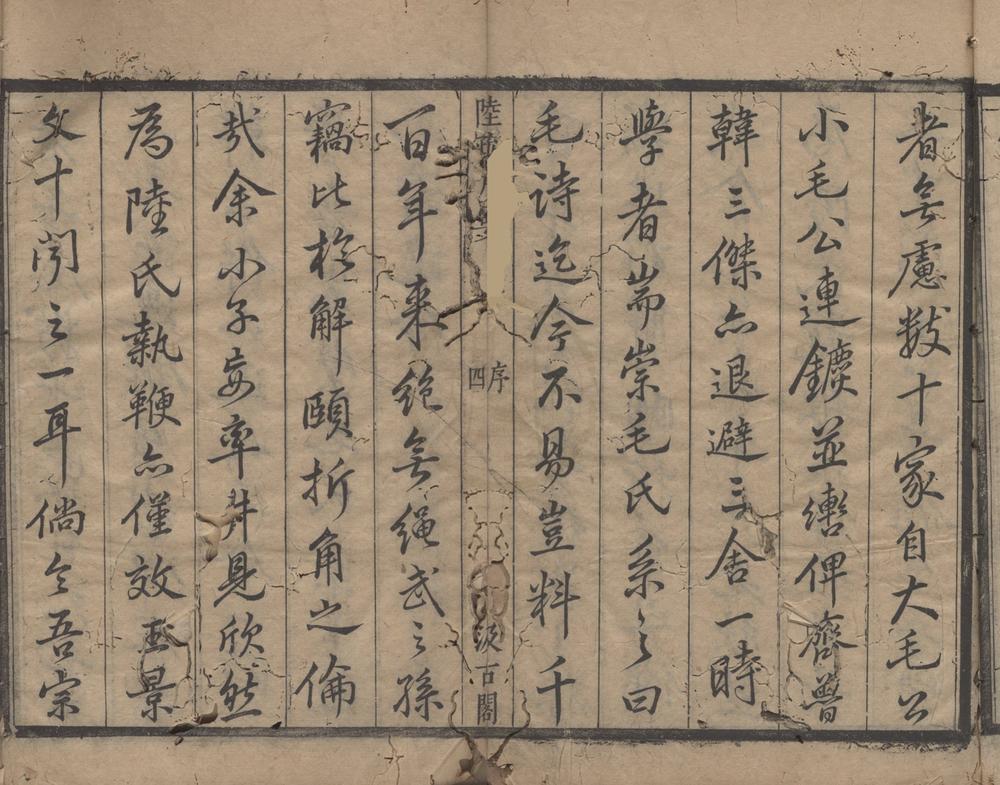 者無慮數十家自大毛公
小毛公連鑣並轡俾齊魯
韓三傑亦退避三舍一時
學者耑崇毛氏系之曰
毛詩迄今不易豈料千
陸
序
四
汲古閣
百年来絶無繩武之孫
竊比於解頤折角之倫
哉余小子妄率井見欣然
為陸氏執鞭亦僅效王景
文十聞之一耳倘令吾宗